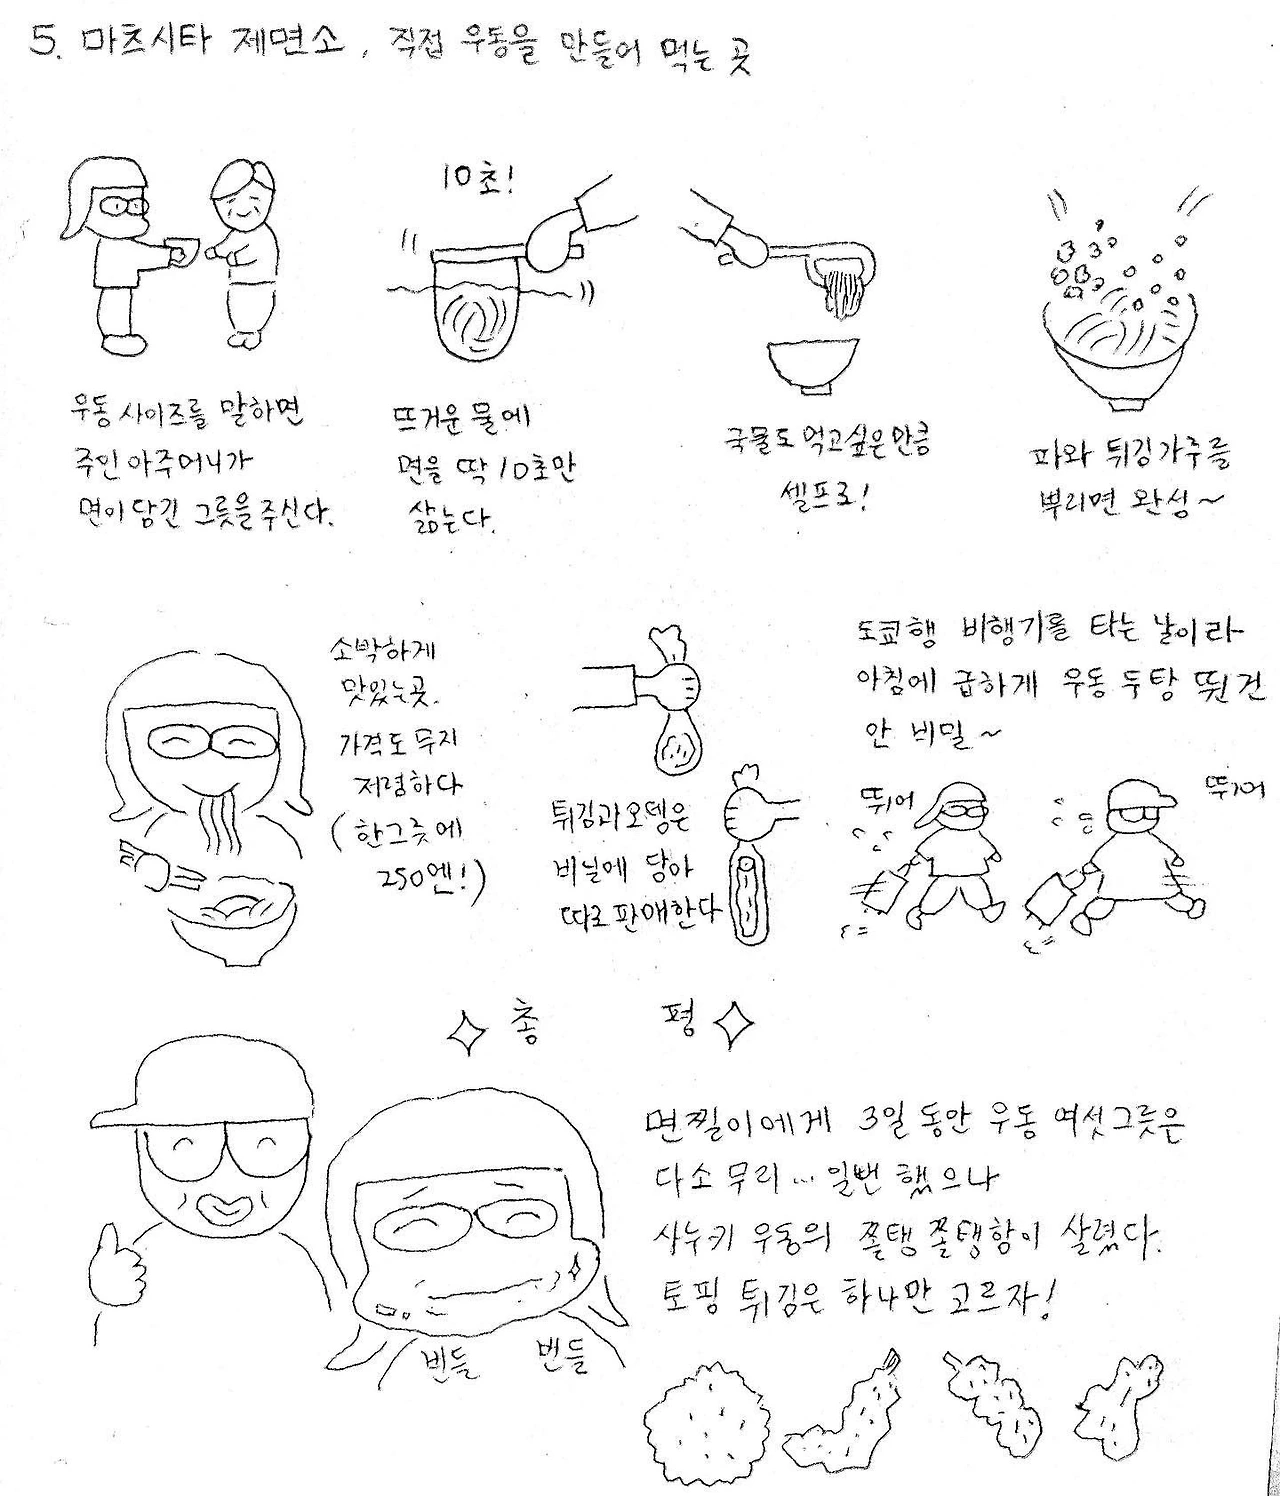 5. 마츠시타 제면소, 직접 우동을 만들어 먹는 곳
우동 사이즈를 말하면
주인 아주머니가
면이 담긴 그릇을 주신다.
10초!
뜨거운 물에
면을 딱 10초만
삶는다.
국물도 먹고싶은만큼
셀프로!
파와 튀김가루를
뿌리면 완성~
소박하게
맛있는곳.
가격도 무지
저렴하다
(한그릇에
250엔!)
튀김과오뎅은
비닐에 담아
따로 판매한다
도쿄행 비행기를 타는 날이라
아침에 급하게 우동 두탕 뛴건
안 비밀~
뛰어
뛰어
총 평
면찔이에게 3일 동안 우동 여섯그릇은
다소 무리... 일뻔 했으나
사누키 우동의 쫄탱쫄탱함이 살렸다.
토핑 튀김은 하나만 고르자!
번들 번들